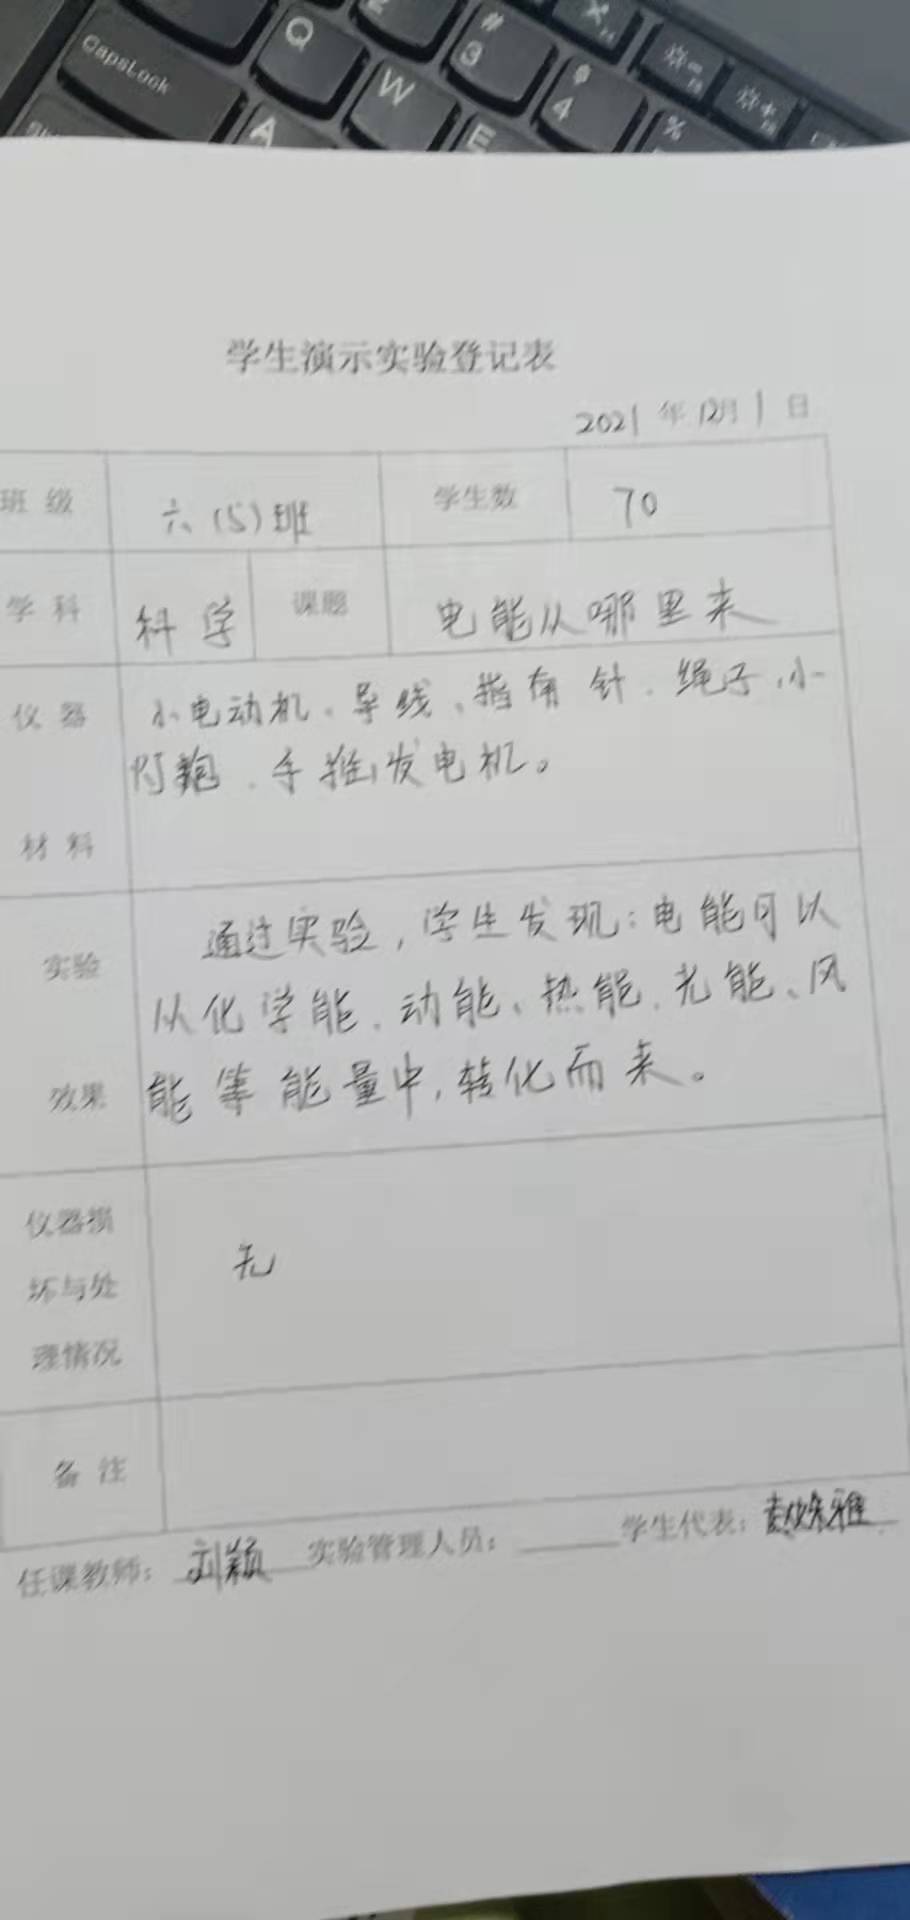 Q
# 3
CapsLock
W
$ 4
A
E
%
学生演示实验登记表
2021 年 12月 1 日
班 级 六(5)班 学生数 70
学 科 科学 课题 电能从哪里来
仪 器 小电动机、导线、指南针、绳子、小
灯泡、手摇发电机。
材 料
通过实验,学生发现:电能可以
实验
从化学能、动能、热能、光能、风
效果 能等能量中,转化而来。
仪器损
无
坏与处
理情况
备 注
任课教师: 刘颖 实验管理人员: 学生代表: